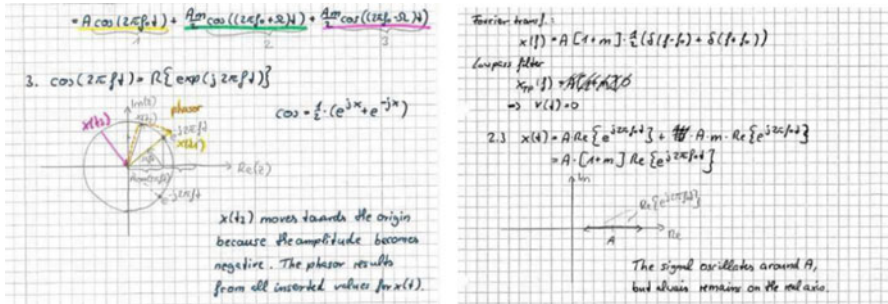 = A cos(2πf₀t) + Am/2 cos((2πf₀+Ω)t) + Am/2 cos((2πf₀-Ω)t)
1 2 3
3. cos(2πft) = R{exp(j2πft)}
Im(z)
phasor
cos = 1/2 · (e^jx + e^-jx)
x(t₂)
x(t₁)
Re(z)
x(t₂) moves towards the origin
because the amplitude becomes
negative. The phasor results
from all inserted values for x(t).
Fourier transf.:
x(f) = A [1+m] · 1/2 (δ(f-f₀) + δ(f+f₀))
Lowpass filter
x_TP(f) =
⇒ v(t) = 0
2.3 x(t) = A Re{e^j2πf₀t} + A · m · Re{e^j2πf₀t}
= A · [1+m] Re{e^j2πf₀t}
Im
Re{e^j2πf₀t}
A
Re
The signal oscillates around A,
but always remains on the real axis.